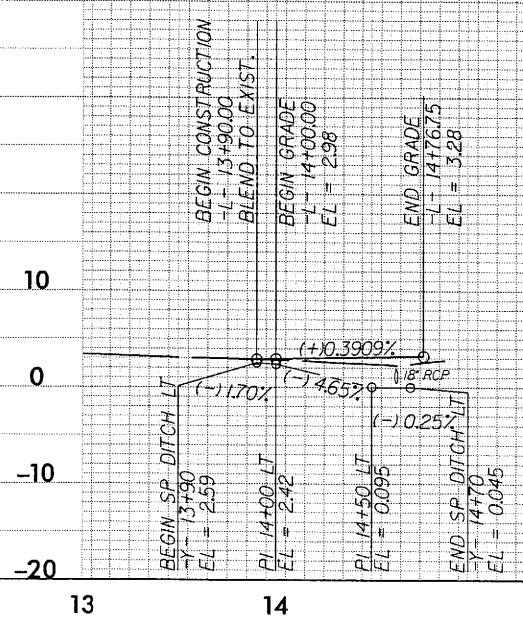 BEGIN CONSTRUCTION
-L- 13+90.00
BLEND TO EXIST.
BEGIN GRADE
-L- 14+00.00
EL = 2.98
END GRADE
-L- 14+76.75
EL = 3.28
10
0
-10
-20
(+)0.3909%
(-)1.70%
(-)4.65%
18" RCP
(-)0.25%
BEGIN SP DITCH LT
-Y- 13+90
EL = 2.59
PI 14+00 LT
EL = 2.42
PI 14+50 LT
EL = 0.095
END SP DITCH LT
-Y- 14+70
EL = 0.045
13
14